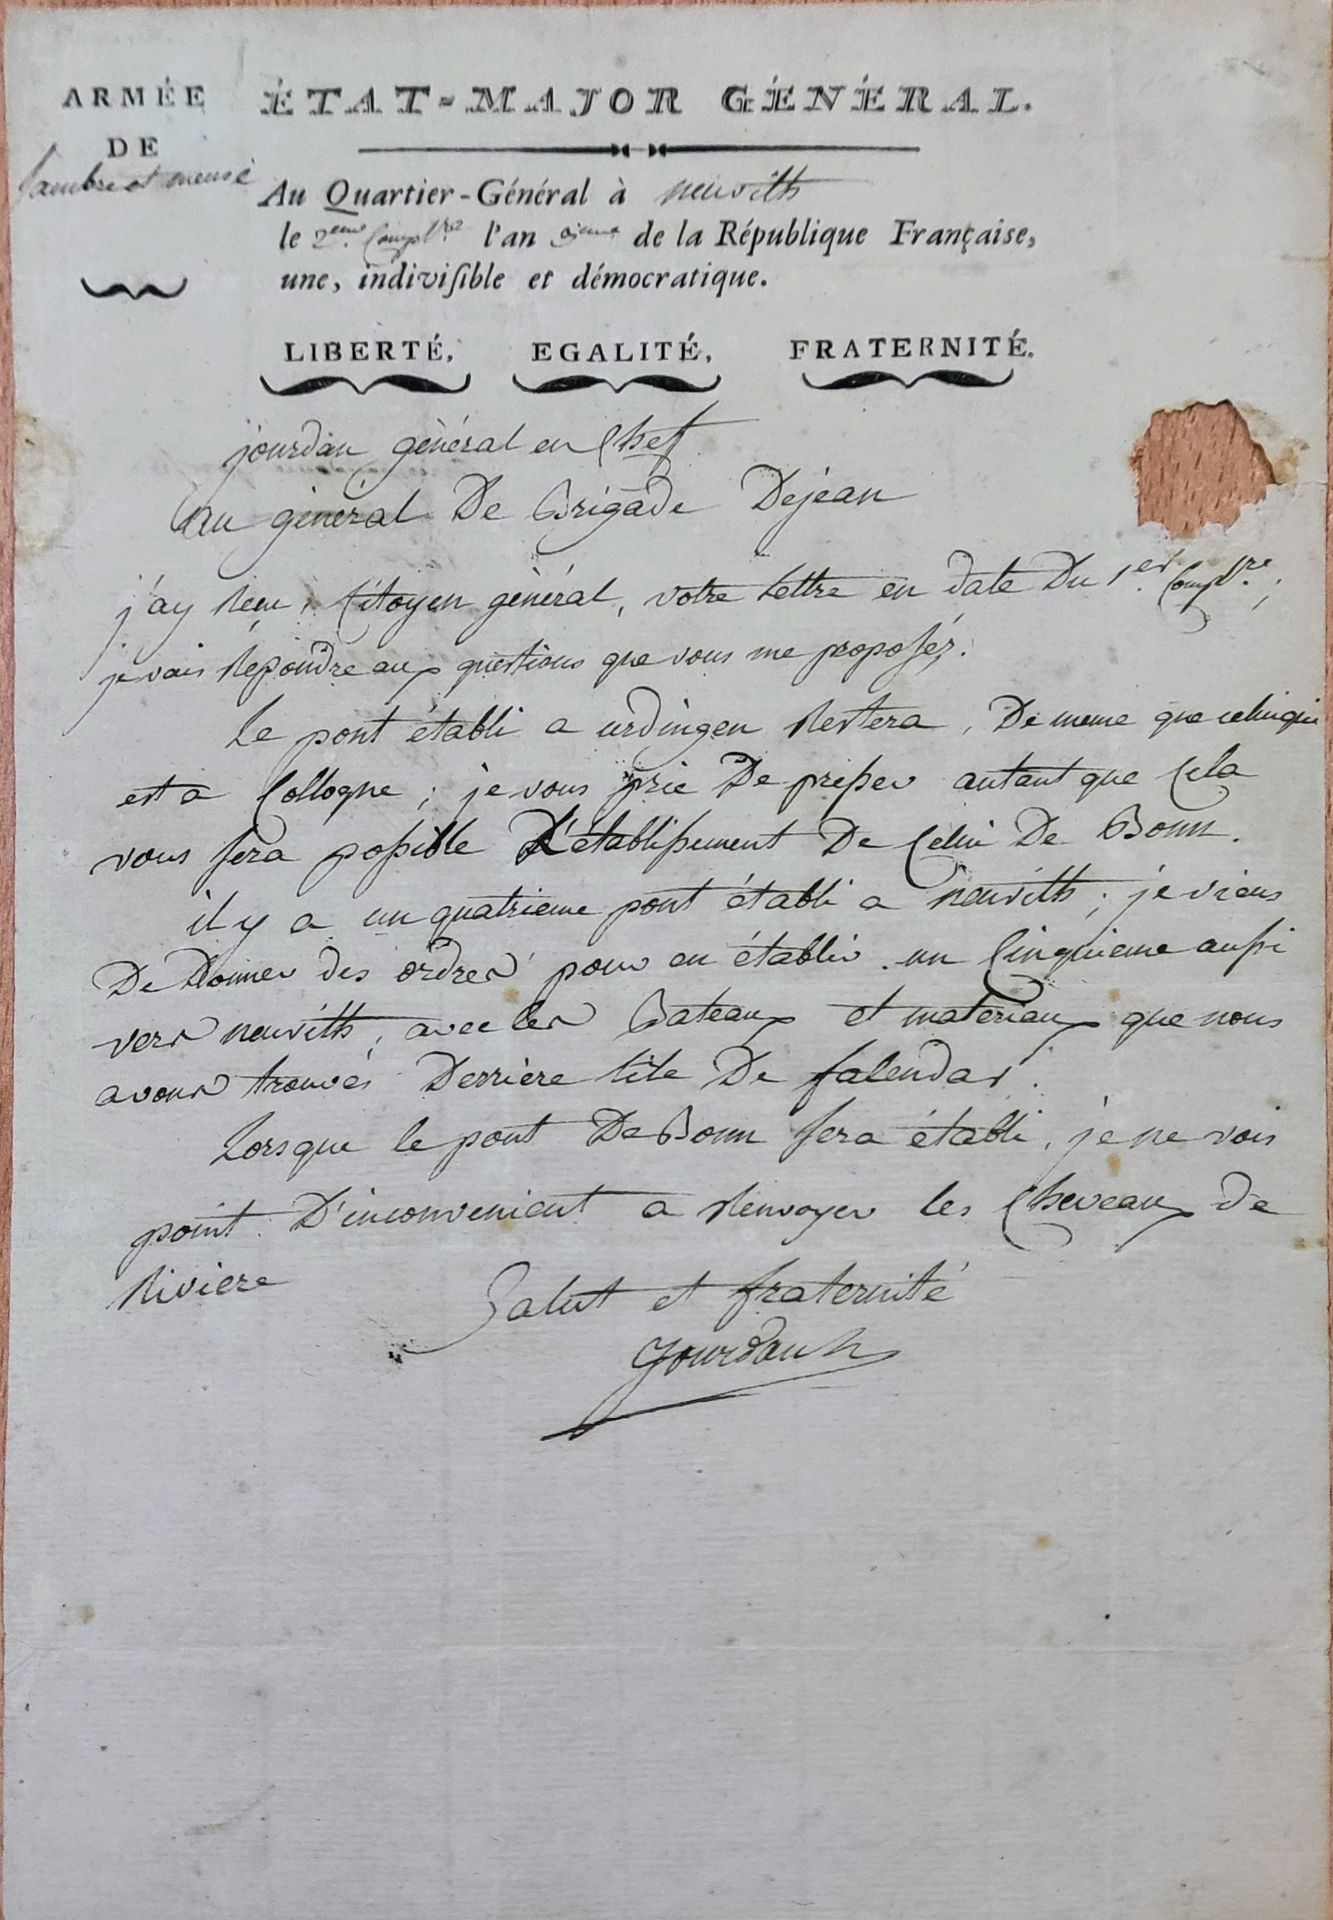 ARMÉE
DE
Sambre et meuse
ÉTAT-MAJOR GÉNÉRAL.
Au Quartier-Général à neuvith
le 2eme Complre l'an 3ieme de la République Française,
une, indiviſible et démocratique.
LIBERTÉ, EGALITÉ, FRATERNITÉ.
jourdan général en Chef
Au géneral De Brigade Dejéan
j'ay Reçu, Citoyen général, votre Lettre en date Du 1er Complre,
je vais Répondre aux questions que vous me proposéz.
Le pont établi a urdingen Restera, De meme que celui qui
est a Collogne; je vous prie De presser autant que Cela
vous sera possible L'établissement De Celui De Bonn.
il y a un quatrieme pont établi a neuvith; je viens
De Donner des ordres pour en établir un Cinquieme aussi
vers neuvith, avec les Bateaux et materiaux que nous
avons trouvés Derriere l'ile De falendar.
Lorsque le pont De Bonn sera établi, je ne vois
point D'inconvenient a Renvoyer les Cheveaux de
Riviere
Salut et fraternité
Jourdan